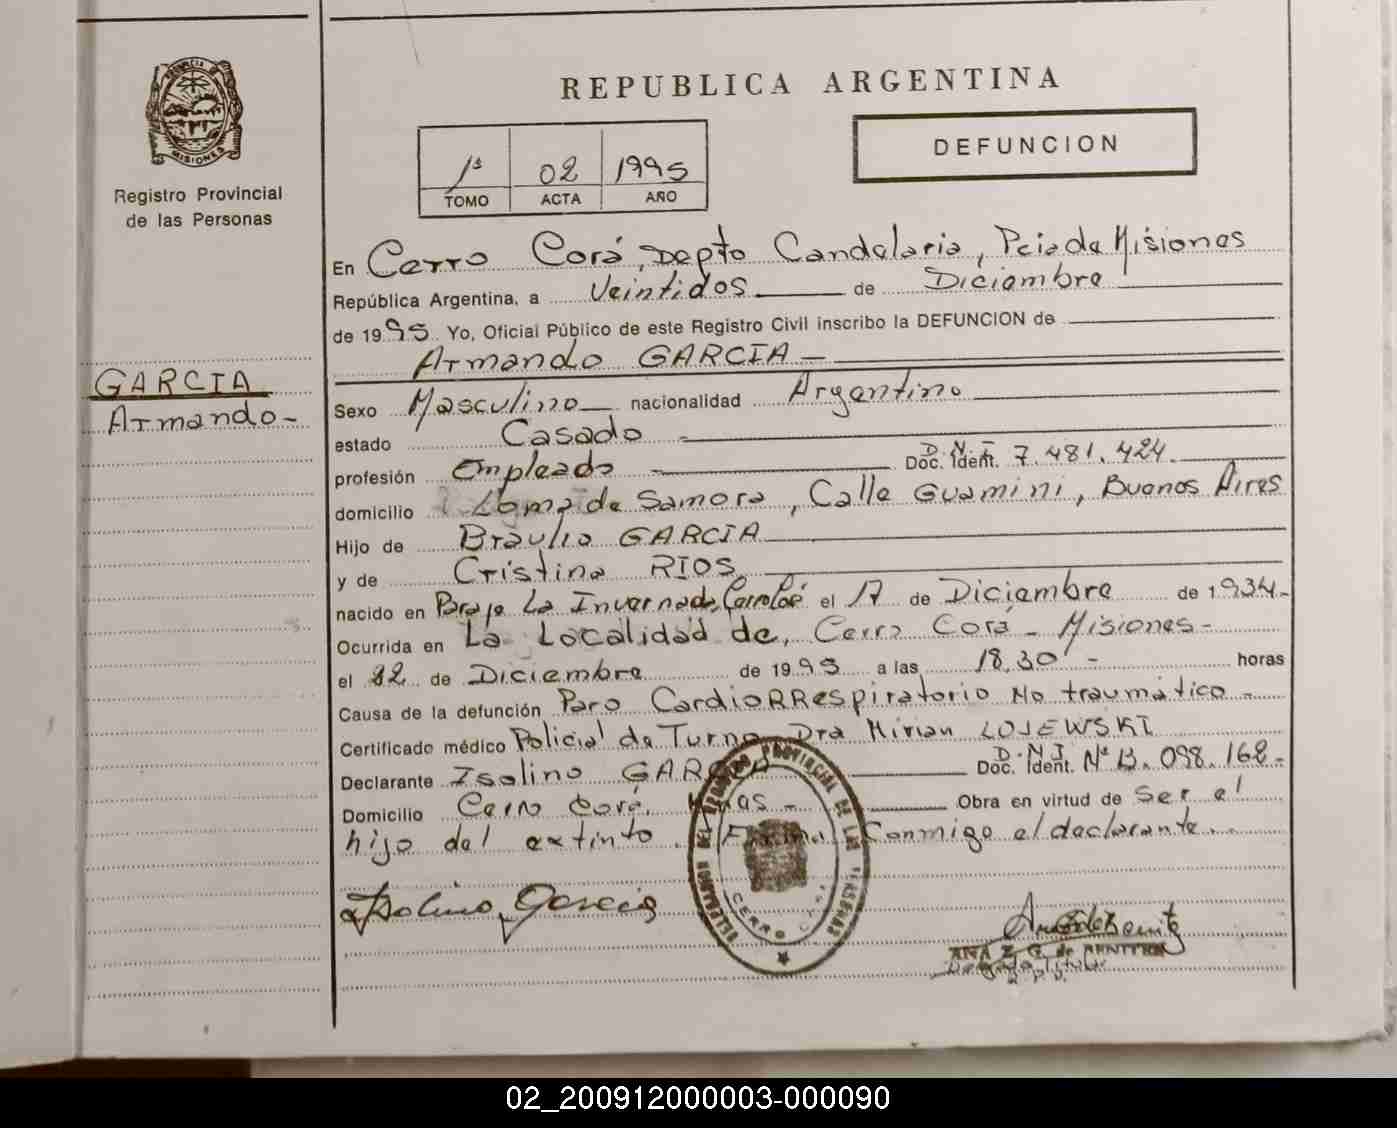 PROVINCIA DE
MISIONES
Registro Provincial
de las Personas
GARCIA
Armando-
REPUBLICA ARGENTINA
1ª 02 1995
TOMO ACTA AÑO
DEFUNCION
En Cerro Corá, Depto Candelaria, Pcia de Misiones
República Argentina, a Veintidos de Diciembre
de 1995 Yo, Oficial Público de este Registro Civil inscribo la DEFUNCION de
Armando GARCIA-
Sexo Masculino nacionalidad Argentino
estado Casado
profesión Empleado D.N.I. Doc. Ident. 7.481.424
domicilio Loma de Samora, Calle Guamini, Buenos Aires
Hijo de Braulio GARCIA
y de Cristina RIOS
nacido en La Invernada, el 17 de Diciembre de 1.934-
Ocurrida en La Localidad de, Cerro Corá - Misiones-
el 22 de Diciembre de 1995 a las 18,30 - horas
Causa de la defunción Paro CardioRRespiratorio No traumático -
Certificado médico Policial de Turno, Dra Mirian LOJEWSKI
Declarante Isolino GARCIA D.N.I. Doc. Ident. Nº 13.098.168-
Domicilio Cerro Corá, Mnas - Obra en virtud de Ser el
hijo del extinto. Firma Conmigo el declarante.
Isolino Garcia
DELEGACION DEL REGISTRO PROVINCIAL DE LAS PERSONAS
CERRO CORA
ANA Z. G. de BENITEZ
Delegada Titular
R.P.P.
02_200912000003-000090